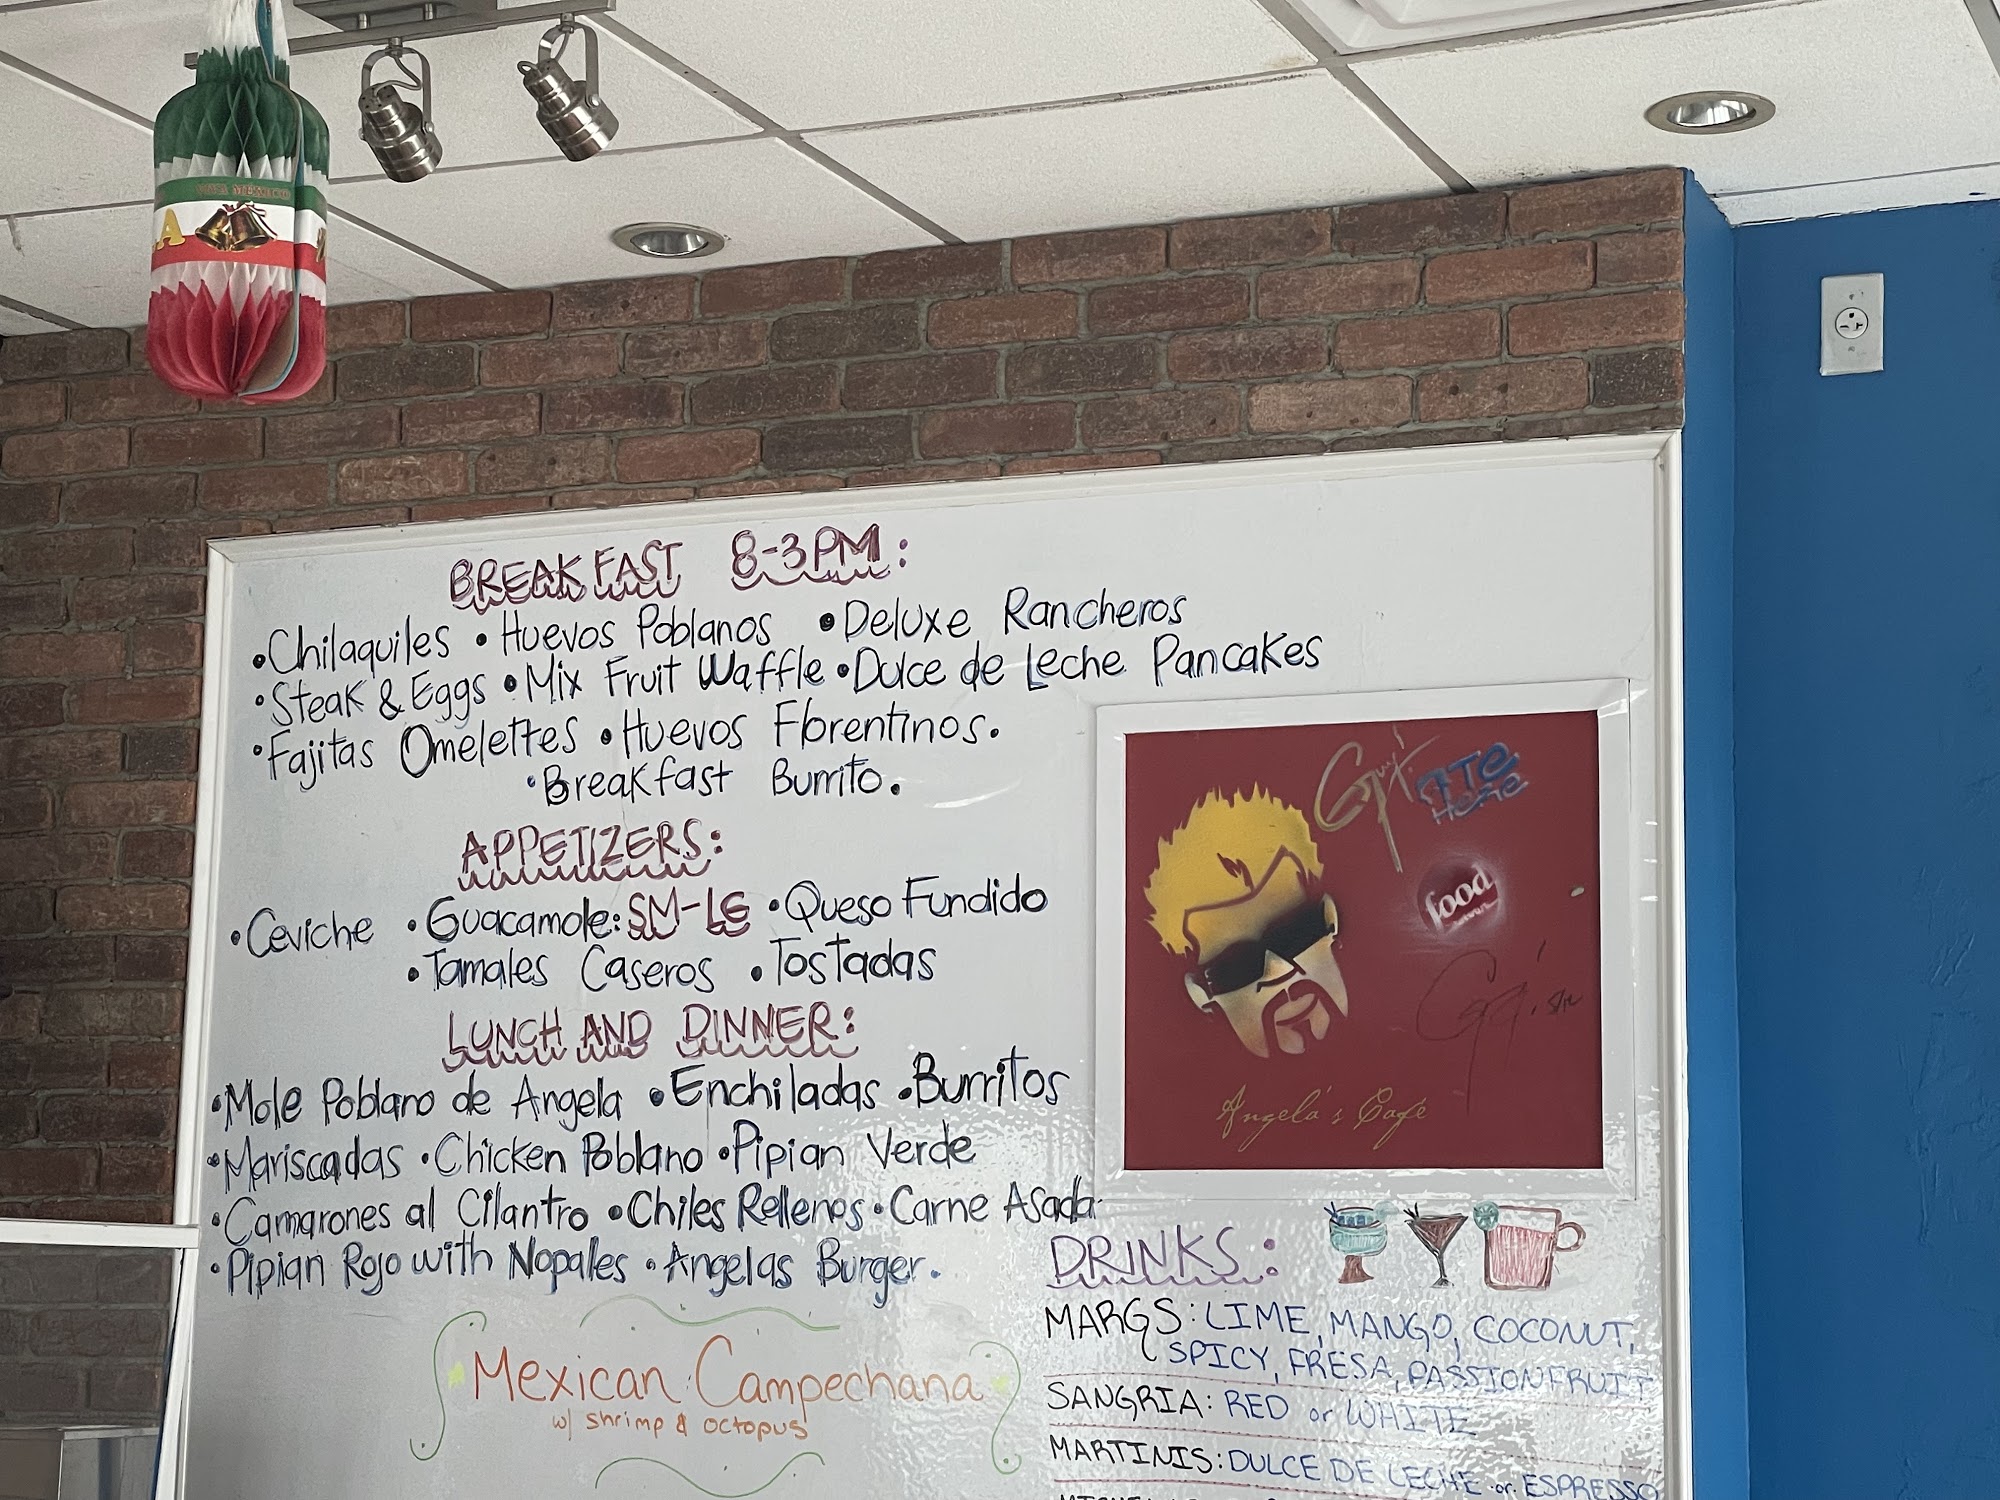 BREAKFAST 8-3PM:
•Chilaquiles •Huevos Poblanos •Deluxe Rancheros
•Steak & Eggs •Mix Fruit Waffle •Dulce de Leche Pancakes
•Fajitas Omelettes •Huevos Florentinos.
•Breakfast Burrito.
APPETIZERS:
•Ceviche •Guacamole: SM-LG •Queso Fundido
•Tamales Caseros •Tostadas
LUNCH AND DINNER:
•Mole Poblano de Angela •Enchiladas •Burritos
•Mariscadas •Chicken Poblano •Pipian Verde
•Camarones al Cilantro •Chiles Rellenos •Carne Asada
•Pipian Rojo with Nopales •Angelas Burger.
Mexican Campechana
w/ shrimp & octopus
food
Angela's Café
DRINKS:
MARGS: LIME, MANGO, COCONUT,
SPICY, FRESA, PASSIONFRUIT
SANGRIA: RED or WHITE
MARTINIS: DULCE DE LECHE or ESPRESSO